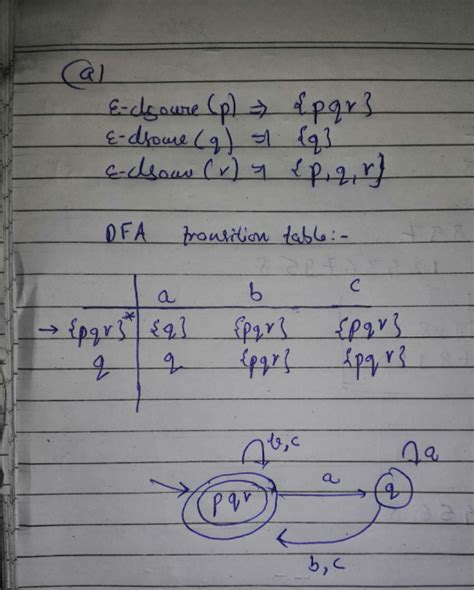 (a)
ε-closure (p) ⇒ {pqr}
ε-closure (q) ⇒ {q}
ε-closure (r) ⇒ {p, q, r}
DFA transition table:-
a b c
→ {pqr}* {q} {pqr} {pqr}
q q {pqr} {pqr}
b, c a
pqr a q
b, c